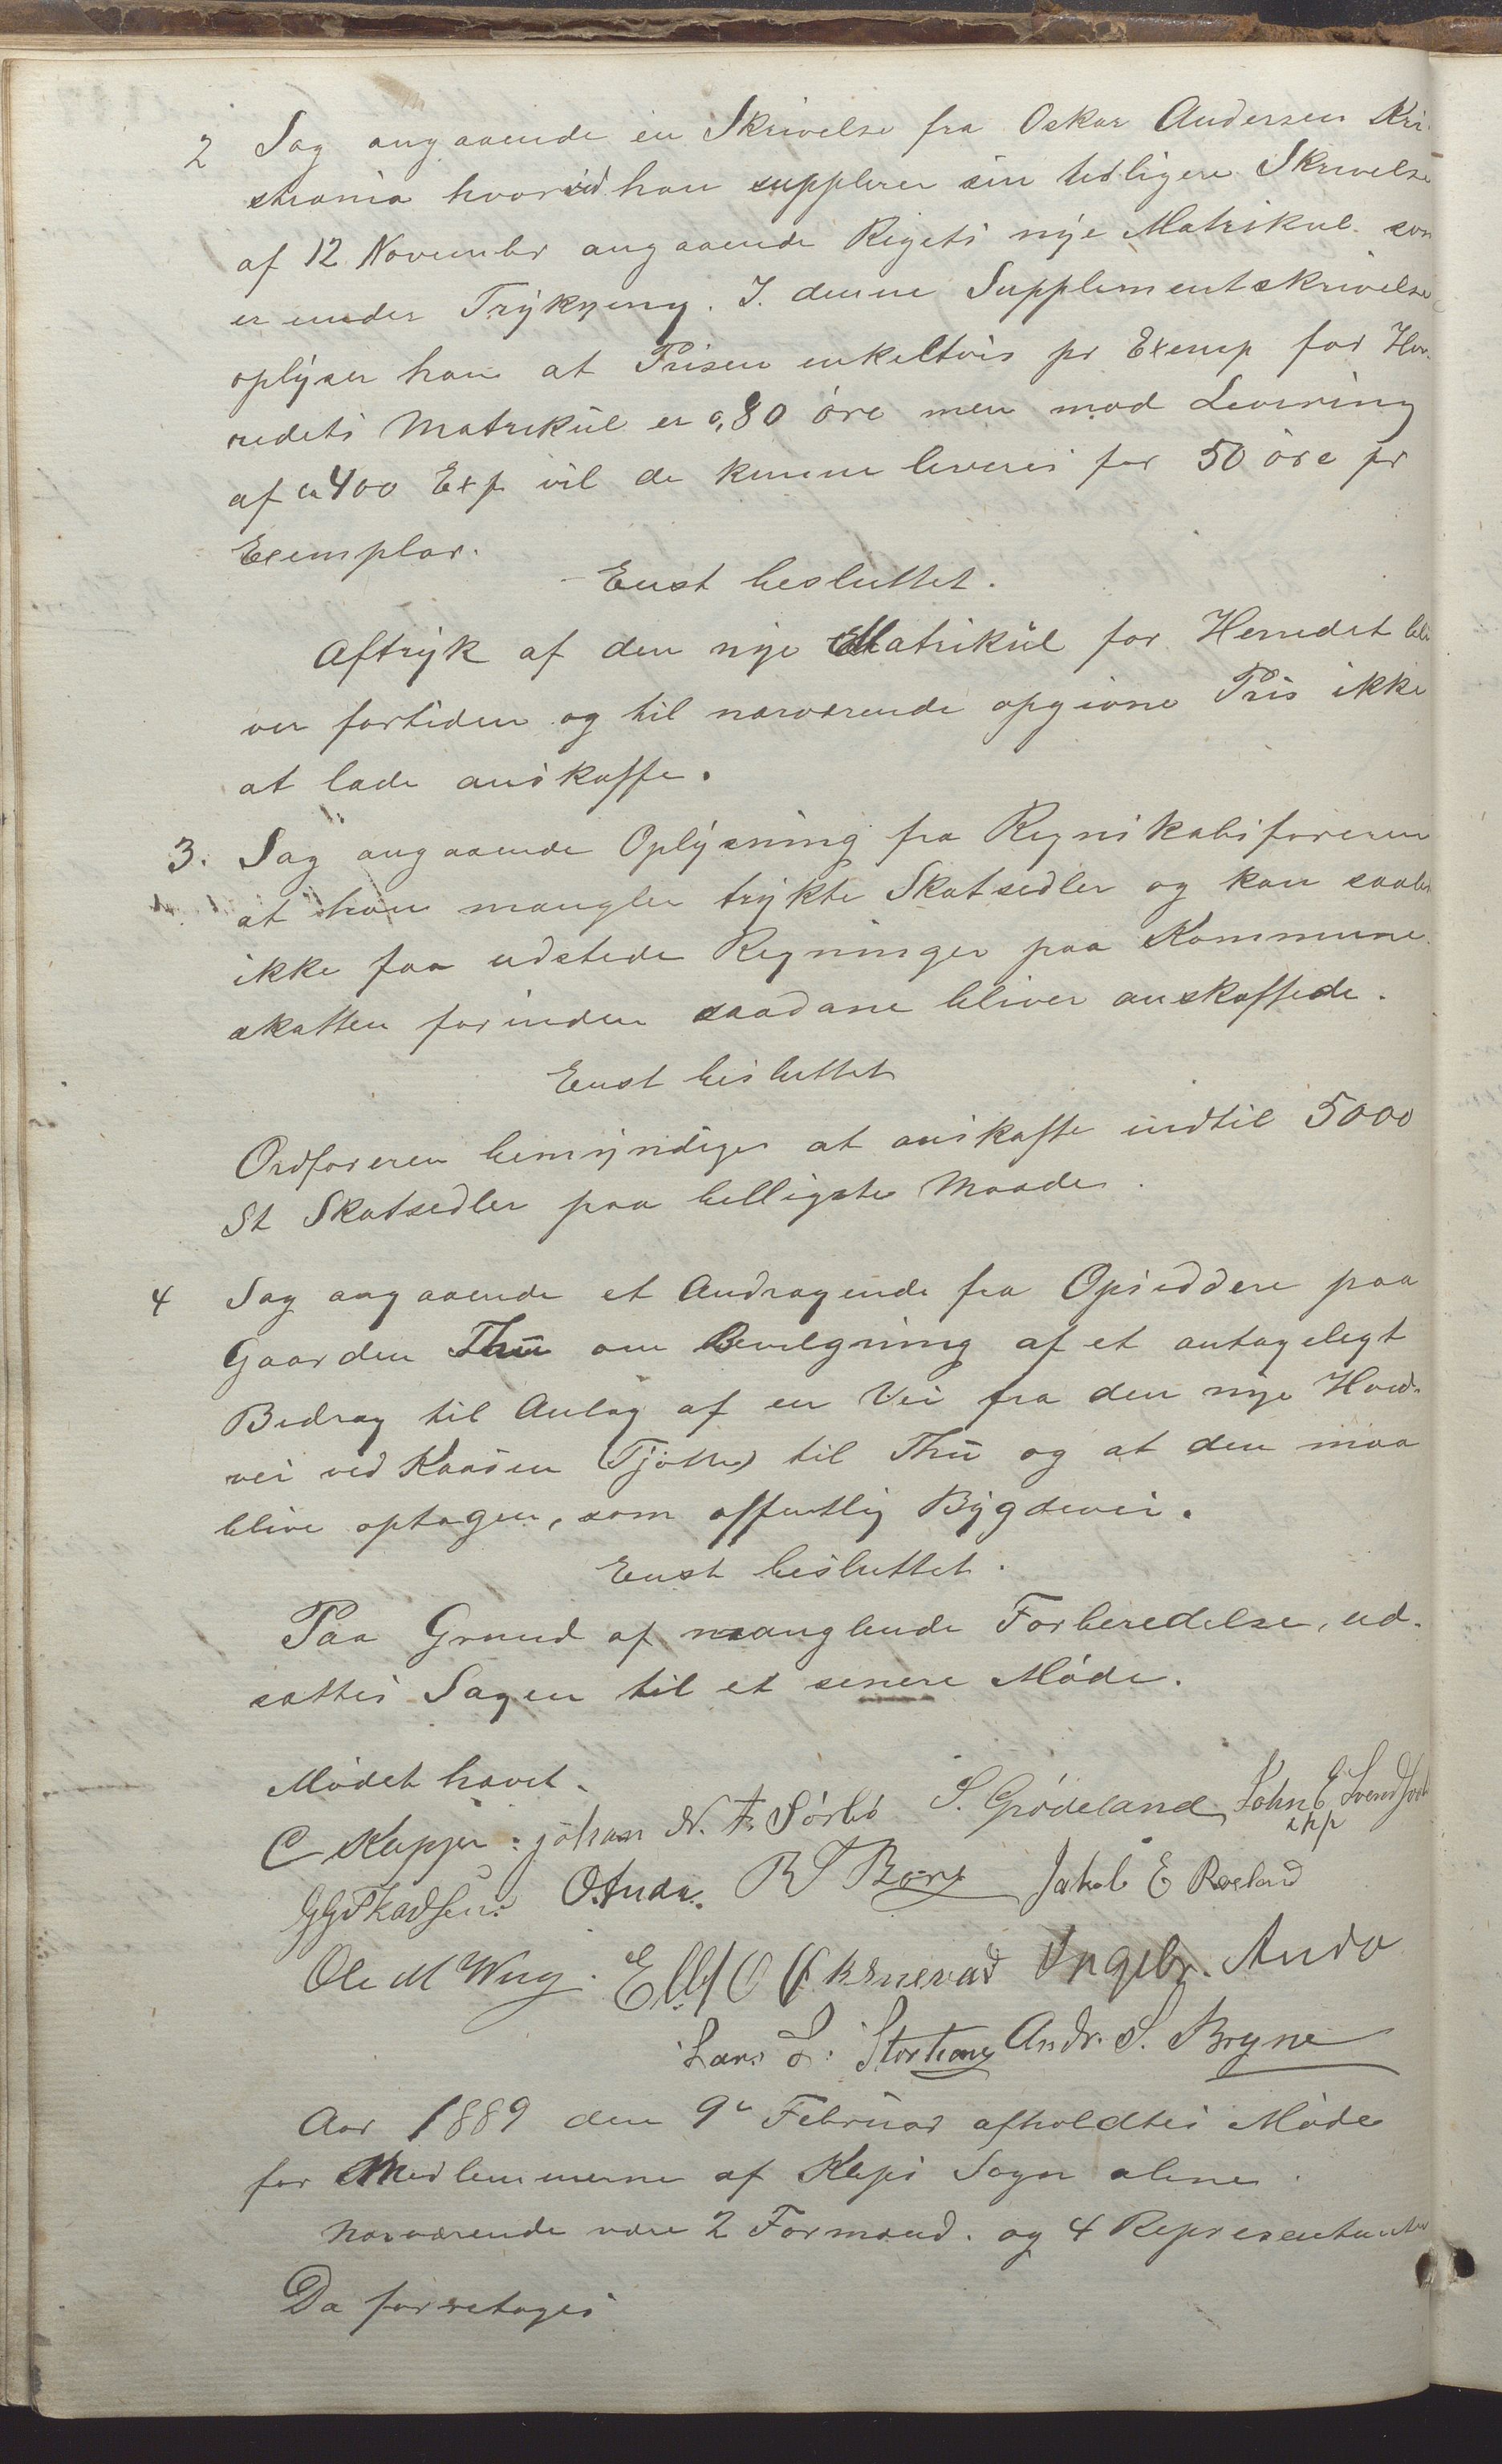 2 Sag angaaende en Skrivelse fra Oskar Andersen Kri-
stiania hvorved han supplerer sin tidligere Skrivelse
af 12 November angaaende Rigets nye Matrikul som
er under Trykning. I denne Supplementskrivelse
oplyser han at Prisen enkeltvis pr Exemp for Her-
redets Matrikul er 0,80 øre men mod Levering
af ca 400 Exp vil de kunne leveres for 50 øre pr
Exemplar.
Enst besluttet.
Aftryk af den nye Matrikul for Herredet bli
ver fortiden og til nærværende opgivne Pris ikke
at lade anskaffe.
3. Sag angaaende Oplysning fra Regnskabsføreren
at han mangler trykte Skatsedler og kan saaled
ikke faa udstede Regninger paa Kommune-
skatten forinden saadane bliver anskaffede.
Enst besluttet
Ordføreren bemyndiges at anskaffe indtil 5000
St Skatsedler paa billigste Maade.
4 Sag angaaende et Andragende fra Opsiddere paa
Gaarden Thu om Bevilgning af et antageligt
Bidrag til Anlæg af en Vei fra den nye Hoved-
vei ved Kaasen (Tjøtta) til Thu og at den maa
blive optagen, som offentlig Bygdevei.
Enst besluttet.
Paa Grund af manglende Forberedelse, ud-
sattes Sagen til et senere Møde.
Mødet hævet.
C Kepper: Johan N. F. Sørbø S. Grødeland John E Svendsen
O. Anda. B T Borg Jakob E Roeland
Ole M Wiig. Ellef O Øksnevad Ingebr. Anda
Lars L. Stortrony Andr. S. Bryne
Aar 1889 den 9de Februar afholdtes Møde
for Medlemmerne af Kleps Sogn alene.
Nærværende være 2 Formænd. og 4 Representanter
Da forretoges